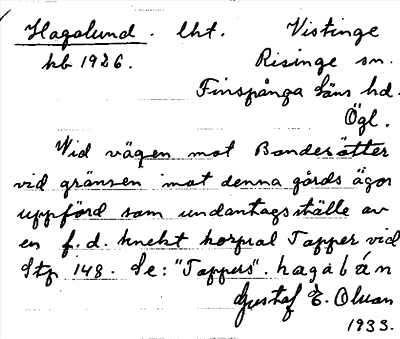 Hagalund. lht. Vistinge
kb 1926. Risinge sn.
Finspånga läns hd.
Ögl.
Vid vägen mot Banderätter
vid gränsen mot denna gårds ägor
uppförd som undantagsställe av
en f.d. knekt korpral Tapper vid
Stp 148. Se: "Tappers". hagabän
Gustaf E. Olson
1933.